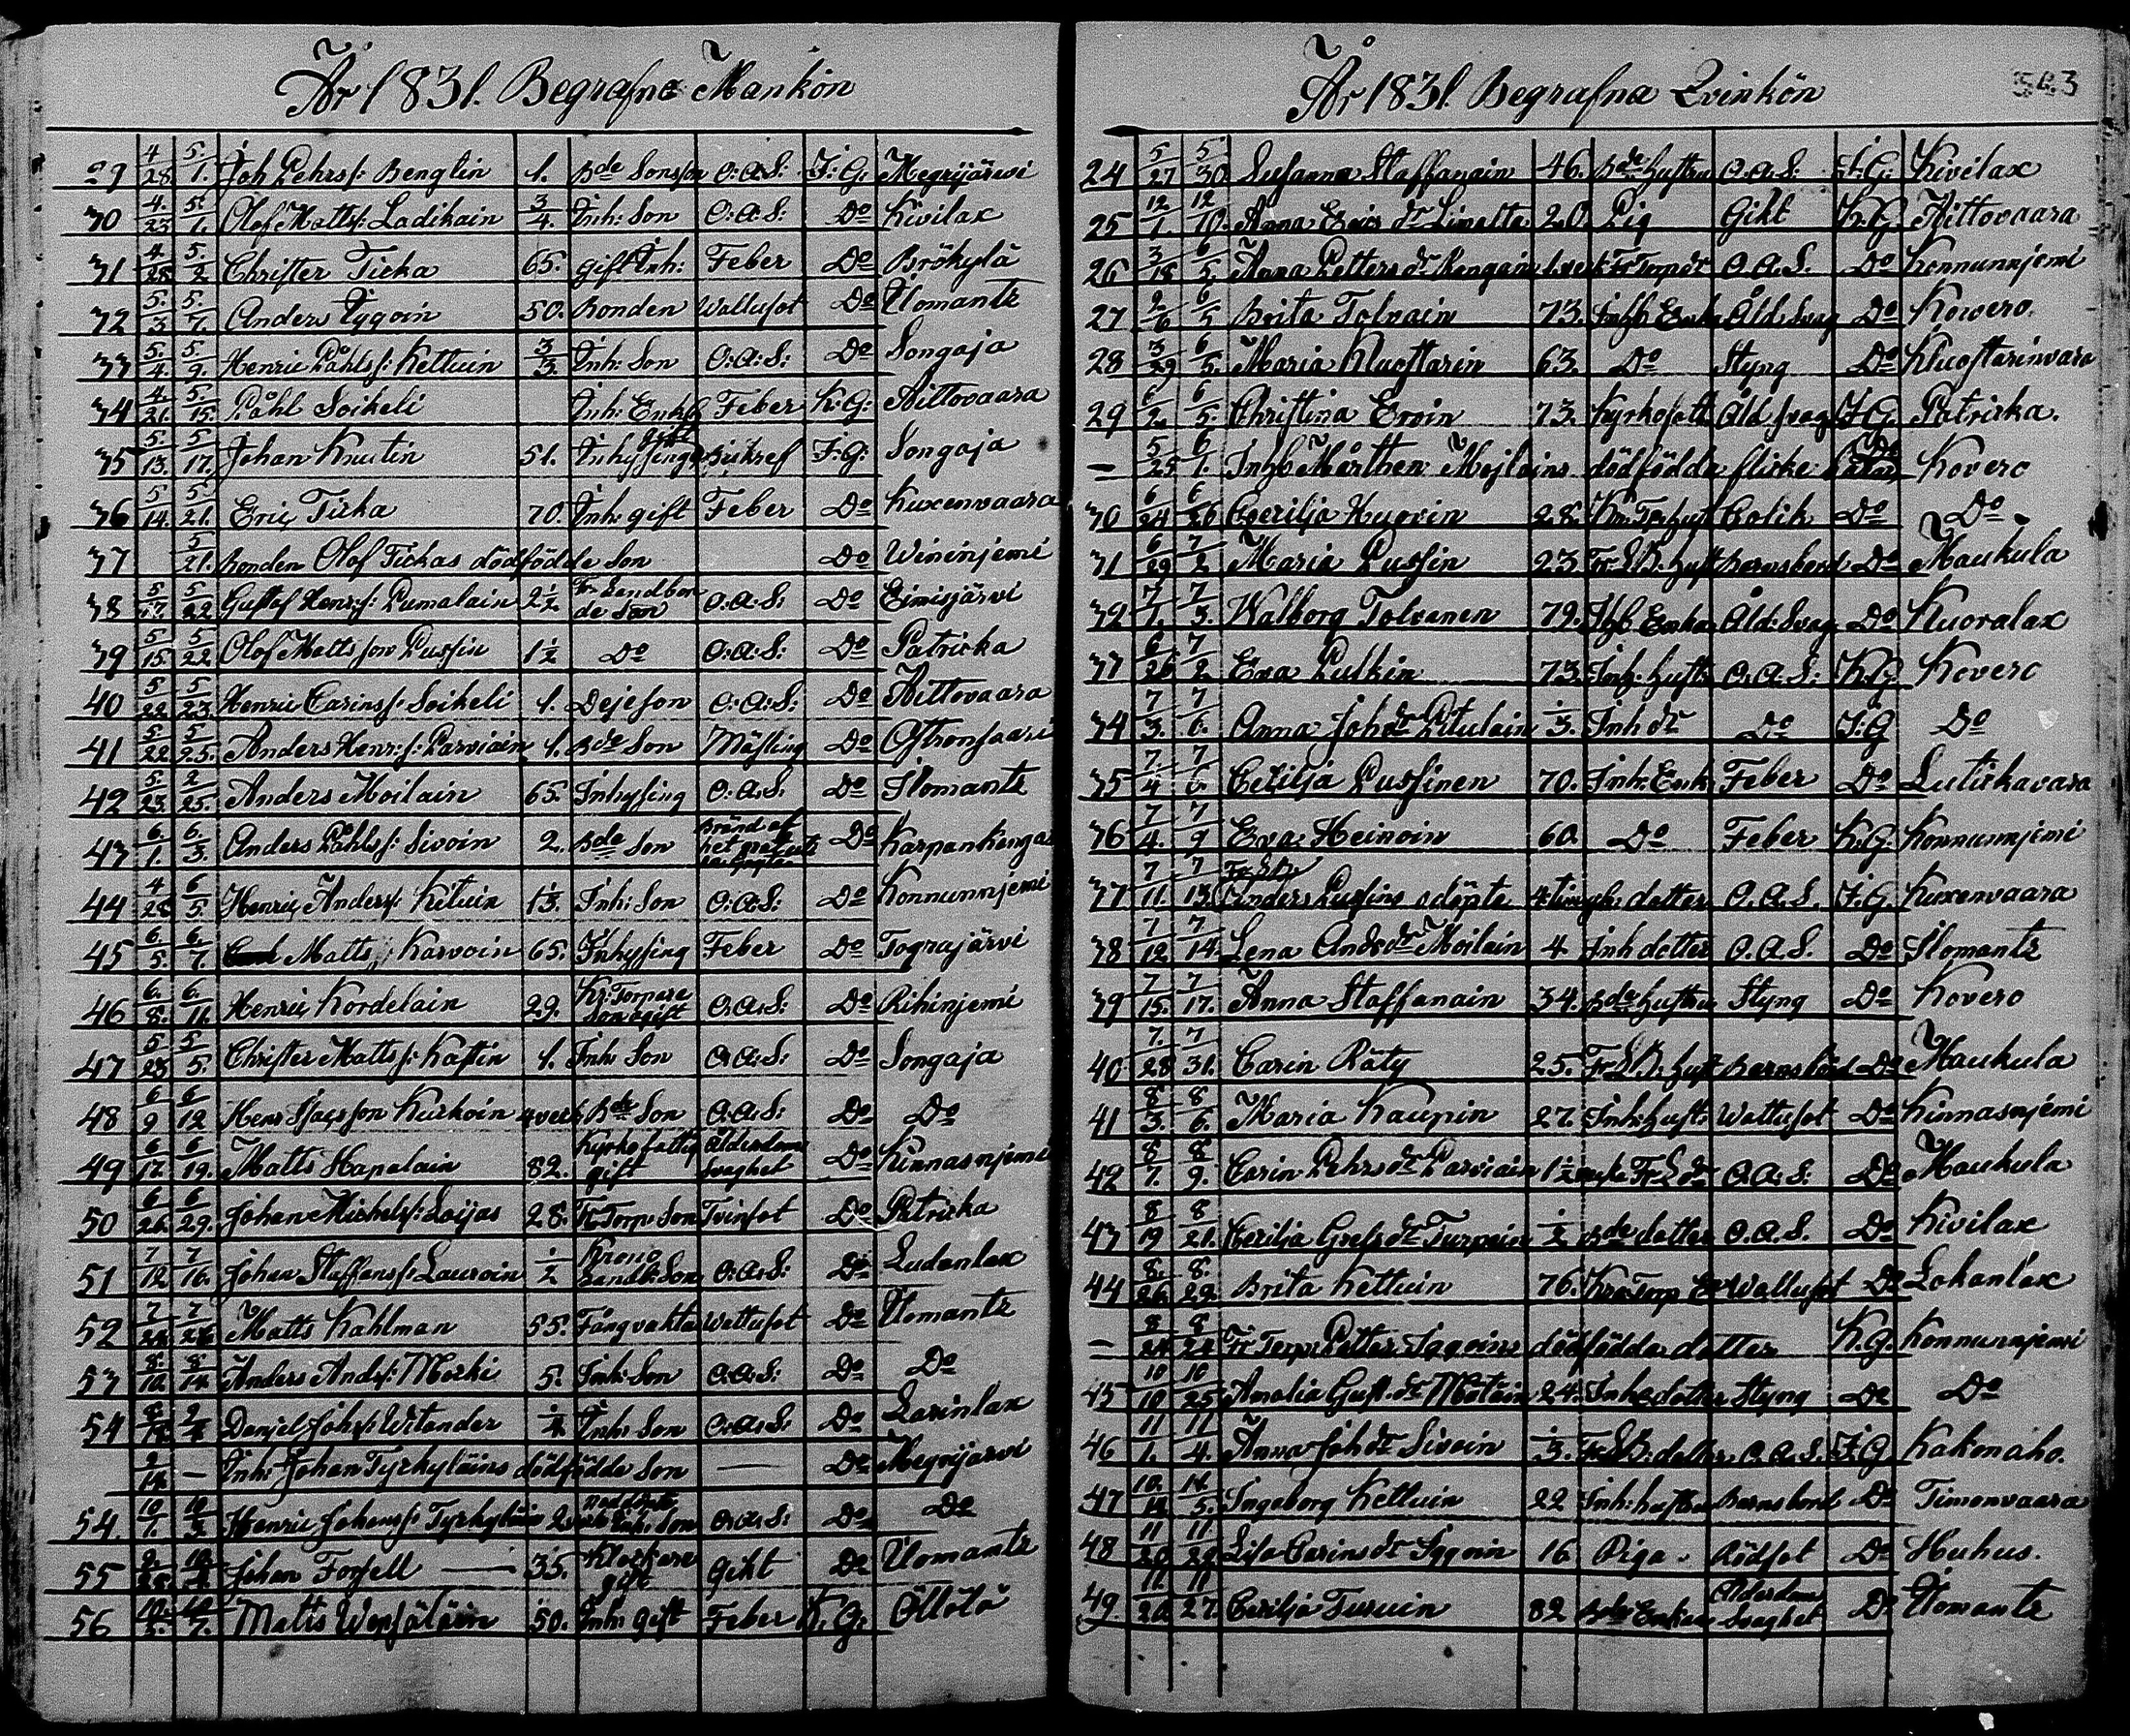 År 1831. Begrafne Mankön
29 4/28 5/1. Joh Pehrs: Benglin 1. Bde Sonson O:A:S: F:G: Megrijärwi
30 4/23 5/1. Olof Matts: Ladikain 3/4. Inh: Son O:A:S: Do Kivilax
31 4/28 5/2 Christer Ticka 65. gift Inh: Feber Do Brökylä
32 5/3 5/7. Anders Iggoin 50. Bonden Wattusot Do Ilomants
33 5/4. 5/9. Henric Påhls: Kettuin 3/3 Inh: Son O:A:S: Do Songaja
34 4/21. 5/15. Påhl Soikeli Inh: Enkl Feber K:G: Aittovaara
35 5/13. 5/17. Johan Knutin 51. Inhysing gift F:G: Songaja
36 5/14. 5/21. Eric Ticka 70. Inh: gift Feber Do Kuxenvaara
37 5/21. Bonden Olof Tickas dödfödde Son Do Wininjemi
38 5/17. 5/22 Gustaf Henr:s: Pumalain 2½ Fr Landbonde Son O:A:S: Do Eimisjärvi
39 5/15. 5/22 Olof Mattsson Pussin 1½ Do O:A:S: Do Patricka
40 5/22 5/23. Henric Carins s: Soikeli 1. Dejeson O:A:S: Do Aittovaara
41 5/22. 5/25. Anders Henr:s: Parviain 1. Bde Son Mässling Do Osthonsaari
42 5/23. 2/25. Anders Moilain 65. Inhysing O:A:S. Do Ilomants
43 6/1. 6/3. Anders Påhls: Sivoin 2. Bde Son Bränd af het Do Karpankanga
44 4/28 6/5. Henric Anders: Kituin 1⅓. Inh: Son O:A:S: Do Konnunnjemi
45 6/5. 6/7. Matts Karvoin 65. Inhysing Feber Do Tograjärvi
46 6/8. 6/11. Henric Kordelain 29. Kr: Torpare Son ogift O:A:S: Do Rihinjemi
47 5/23 5/5. Christer Matts s: Kattin 1. Inh: Son O:A:S: Do Songaja
48 6/9 6/12 Henr Isacsson Kurkoin 4 veck Bde Son O:A:S: Do Do
49 6/17. 6/19. Matts Hapalain 82. Kyrkofattig gift Ålderdoms Svaghet Do Kinnasnjemi
50 6/26. 6/29. Johan Michelss: Loijas 28. Fr Torp: Son Tvinsot Do Patricka
51 7/12 7/16. Johan Staffanss: Lauroin ½ Krono Landb: Son O:A:S: Do Ludanlax
52 7/24. 7/26. Matts Kahlman 55. Fångvakta Wattusot Do Ilomants
53 8/10. 8/14. Anders Ands: Mocki 5. Inh: Son O:A:S: Do Do
54 Daniel Johs: Witander ¼ Inh: Son O:A:S: Do Larinlax
9/14. — Inh: Johan Tyrkyläins dödfödde Son — Do Megrijärvi
54. 10/1. 10/3. Henric Johans s: Tyrkyläin 2 Inh: Son O:A:S: Do Do
55 Johan Forsell — 35. Klockare gift Gikt Do Ilomants
56 10/7. Matts Wepsäläin 50. Inh: gift Feber K:G: Öllölö
År 1831. Begrafna Qvinkön 543
24 5/27 5/30 Susanna Staffanain 46. Bde hustru O.A.S: F:G: Kivilax
25 12/1. 12/10. Anna Erics dr Limatta 20. Pig Gikt K:G. Aittovaara
26 3/18 6/5. Anna Petters dr Rengain 1 veck Fr Torp dr O.A.S. Do Konnunnjemi
27 2/6 6/5 Brita Tolvain 73. Inh Enka Åld: Svag Do Kovero.
28 3/29 6/5. Maria Kuostarin 63. Do Styng Do Kluostarinvara
29 6/2. 6/5. Christina Ervin 73. Kyrkofatt Åld svag F.G. Patricka.
— 5/25 6/1. Inh: Mårthen Mojlains dödfödda flicka Do Kovero
30 6/24 6/26 Cecilja Huovin 28. Colik Do Do
31 6/29 7/2. Maria Pussin 23 Fr L B: hust Barnsbörd Do Maukula
32 7/1. 7/3. Walborg Tolvanen 79. Enka Åld: Svag Do Kuoralax
33 6/26 7/2. Eva Pulkin 73. Inh: hust: O.A.S: K.G. Kovero
34 7/3. 7/6. Anna Joh dr Pitulain ⅓. Inh dr Do F.G Do
35 7/4 7/6. Cecilja Pussinen 70. Inh: Enk Feber Do Lutickavara
36 7/4. 7/9 Eva Heinoin 60. Do Feber K.G. Konnunnjemi
37 7/11. 7/13. Fr L B Anders Pussins odöpte 4 tim gl. dotter O.A.S. F.G. Kuxenvaara
38 7/12 7/14. Lena Ands dr Moilain 4 Inh dotter O.A.S. Do Ilomants
39 7/15. 7/17. Anna Staffanain 34. Bde hustru Styng Do Kovero
40 7/28 7/31. Carin Räty 25. Fr L B: hust Barnsbörd Do Maukula
41 8/3. 8/6. Maria Kaupin 27. Inh: hust: Wattusot Do Kinnasnjemi
42 8/7. 8/9. Carin Pehrs dr Parviain 1½ O.A.S: Do Maukula
43 8/19 8/21. Cecilja Grels dr Turpein ½ Bde dotter O.A.S. Do Kivilax
44 8/26. 8/29. Brita Kettuin 76. Kro Torp Wattusot Do Lohanlax
— Fr Torp: Petter Iggoins dödfödda dotter K.G. Konnunnjemi
45 10/10 10/25 Amalia Gust. dr Mötain 24. Inh: dotter Styng Do Do
46 11/1. 11/4. Anna Joh dr Sivoin ⅓. Fr L B: dotter O.A.S. F.G Kakonaho.
47 Ingeborg Kettuin 22 Inh: hustru Barnsbörd Do Timonvaara
48 Lisa Carins dr Iggoin 16 Piga Rödsot Do Huhus.
49. 11/20 11/27 Cecilja Turuin 82 Bde Enka Ålderdoms Svaghet Do Ilomants